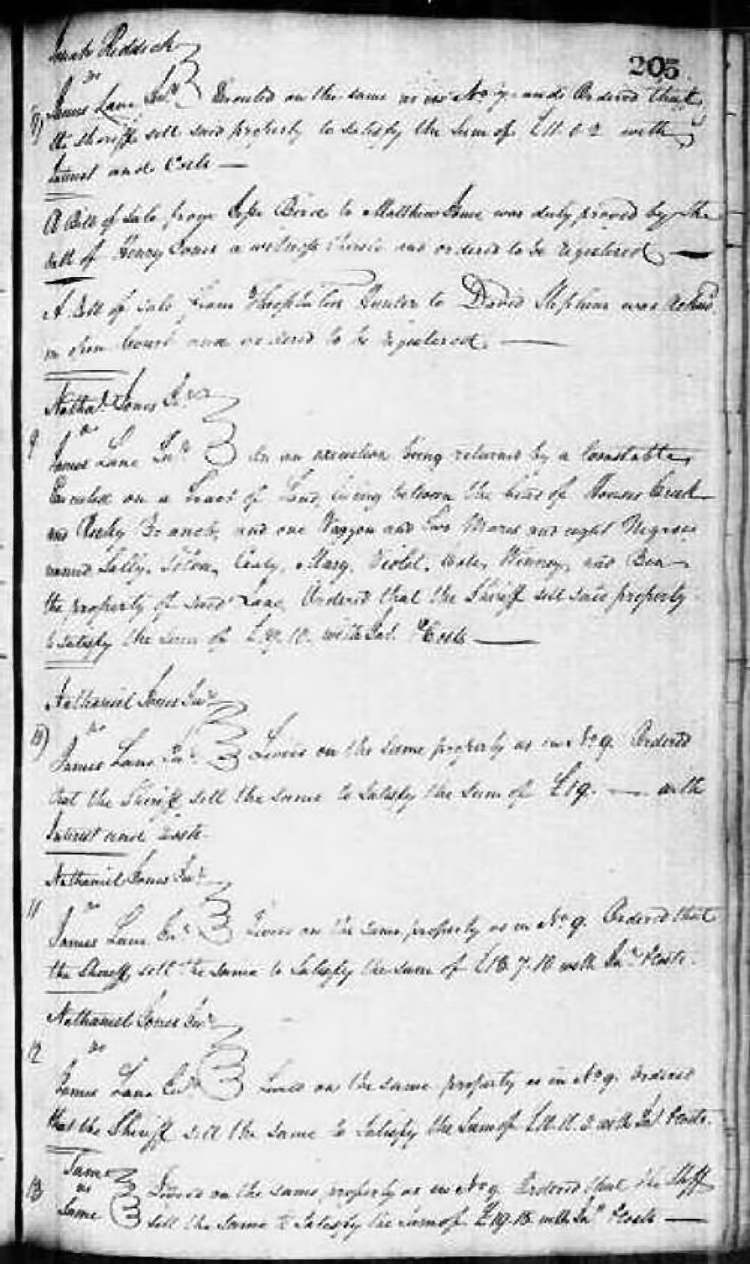 205
Riddick
vs
8) James Lane Junr Levied on the same as in No 7 and Ordered that
the Sheriff sell said property to satisfy the Sum of £11.6.2 with
Interest and Costs —
A Bill of Sale from Bird to Matthew Jones was duly proved by the
Oath of Henry Jones a witness thereto and ordered to be registered —
A Bill of Sale from Hunter to David Stephens was
in open Court and ordered to be registered —
Nathl. Jones
vs
9 James Lane Junr On an execution being returned by a Constable
Executed on a Tract of Land lying between the of Houses Creek
and Rocky Branch, and one Waggon and two Mares and eight Negroes
named Sally, Mary, Violet, Winney, and Ben
the property of said Lane, Ordered that the Sheriff sell said property
to satisfy the sum of with Int. & Costs —
Nathaniel Jones Junr
vs
10) James Lane Junr Levied on the same property as in No 9. Ordered
that the Sheriff sell the same to satisfy the Sum of £19. — with
Interest and Costs
Nathaniel Jones Junr
vs
11 James Lane Junr Levied on the same property as in No 9. Ordered that
the Sheriff sell the same to satisfy the sum of £18.7.10 with Int. & Costs.
Nathaniel Jones Junr
vs
12 James Lane Levied on the same property as in No 9. Ordered
that the Sheriff sell the same to satisfy the Sum of with Int. & Costs.
Same
vs
13 Levied on the same property as in No 9 Ordered that the Shff
Same sell the same to satisfy the sum of £19.18. with Int. & Costs —